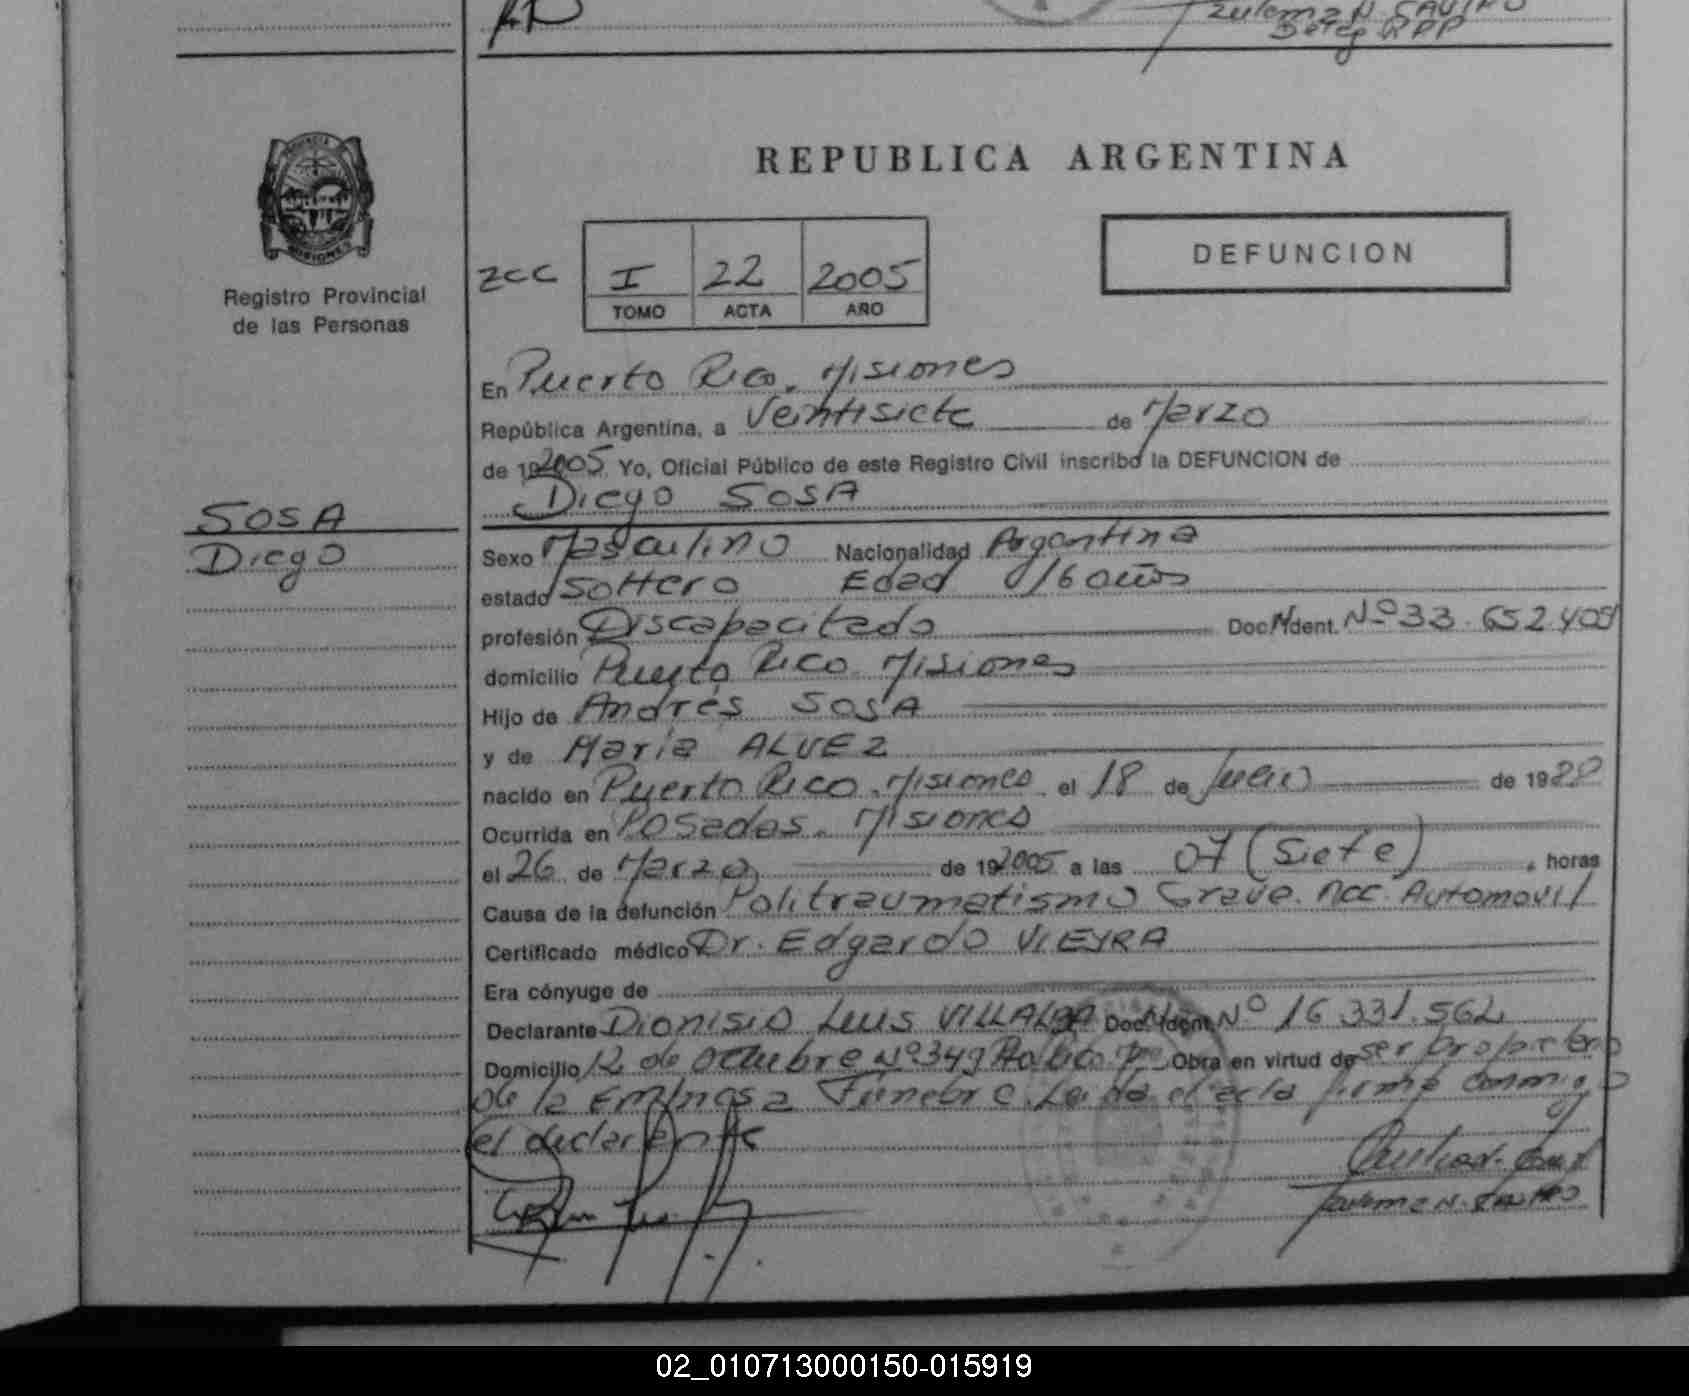 Zulema N. CASTRO
Deleg RPP
REPUBLICA ARGENTINA
DEFUNCION
ZCC I 22 2005
TOMO ACTA AÑO
Registro Provincial
de las Personas
En Puerto Rico. Misiones
República Argentina, a Veintisiete de Marzo
de 192005 Yo, Oficial Público de este Registro Civil inscribo la DEFUNCION de
Diego SOSA
SOSA
Diego
Sexo Masculino Nacionalidad Argentina
estado Soltero Edad 16 años
profesión Discapacitado Doc. Ident. Nº 33.652.409
domicilio Puerto Rico Misiones
Hijo de Andrés SOSA
y de María ALVEZ
nacido en Puerto Rico. Misiones el 18 de Julio de 19
Ocurrida en Posadas. Misiones
el 26 de Marzo de 192005 a las 07 (Siete) horas
Causa de la defunción Politraumatismo Grave. Acc. Automovil
Certificado médico Dr. Edgardo VIEYRA
Era cónyuge de
Declarante Dionisio Luis VILLALBA Doc. Ident. Nº 16.331.562
Domicilio 12 de Octubre Nº 349 Pto Rico Obra en virtud de ser propietario
de la Empresa Fúnebre. Leída el acta firma conmigo
el declarante
Zulema N. CASTRO
02_010713000150-015919